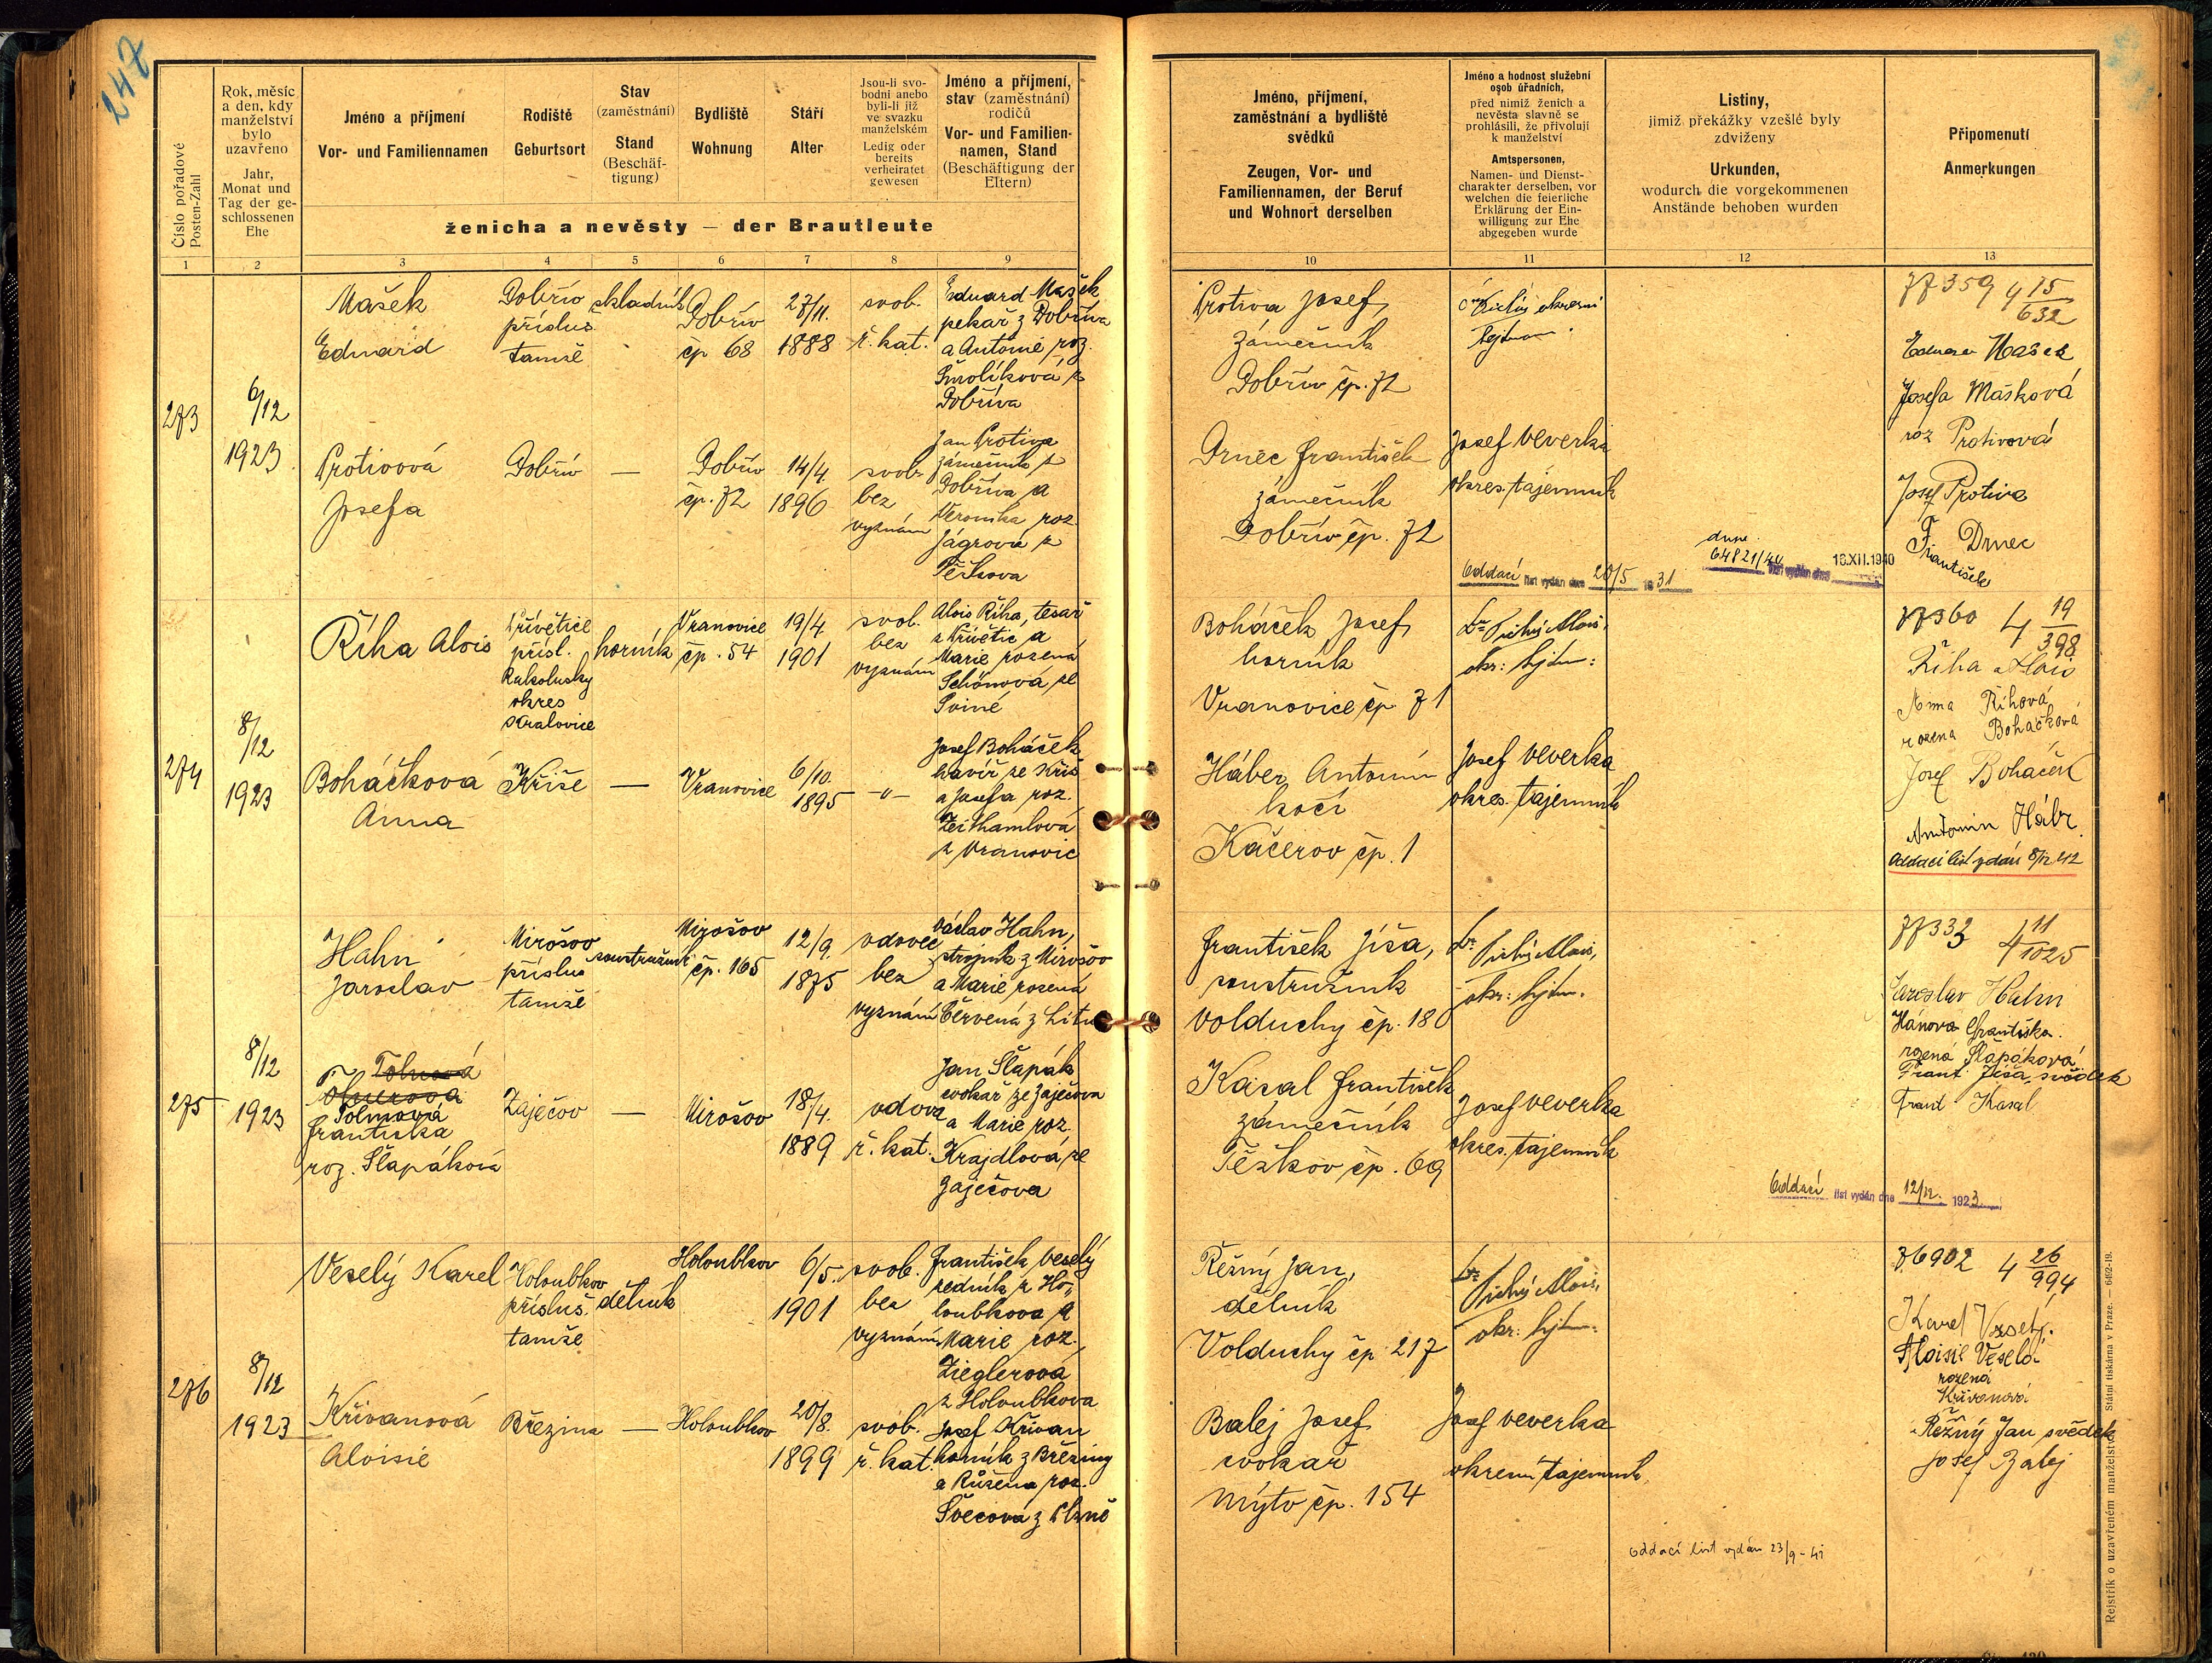 247
Číslo pořadové
Posten-Zahl
Rok, měsíc
a den, kdy
manželství
bylo
uzavřeno
Jahr,
Monat und
Tag der ge-
schlossenen
Ehe
Jméno a příjmení
Vor- und Familiennamen
Rodiště
Geburtsort
Stav
(zaměstnání)
Stand
(Beschäf-
tigung)
Bydliště
Wohnung
Stáří
Alter
Jsou-li svo-
bodni anebo
byli-li již
ve svazku
manželském
Ledig oder
bereits
verheiratet
gewesen
Jméno a příjmení,
stav (zaměstnání)
rodičů
Vor- und Familien-
namen, Stand
(Beschäftigung der
Eltern)
ženicha a nevěsty — der Brautleute
Jméno, příjmení,
zaměstnání a bydliště
svědků
Zeugen, Vor- und
Familiennamen, der Beruf
und Wohnort derselben
Jméno a hodnost služební
osob úřadních,
před nimiž ženich a
nevěsta slavně se
prohlásili, že přivolují
k manželství
Amtspersonen,
Namen- und Dienst-
charakter derselben, vor
welchen die feierliche
Erklärung der Ein-
willigung zur Ehe
abgegeben wurde
Listiny,
jimiž překážky vzešlé byly
zdviženy
Urkunden,
wodurch die vorgekommenen
Anstände behoben wurden
Připomenutí
Anmerkungen
1 2 3 4 5 6 7 8 9 10 11 12 13
273
6/12
1923
Mašek
Eduard
Dobřív
přísluš.
tamže
skladník
Dobřív
čp 68
27/11.
1888
svob.
ř. kat.
Eduard Mašek
pekař z Dobříva
a Antonie roz.
Smolíková z
Dobříva
Protivová
Josefa
Dobřív
—
Dobřív
čp. 72
14/4
1896
svob.
bez
vyznání
Jan Protiva
zámečník z
Dobříva a
Veronika roz.
Jágrová z
Těškova
Protiva Josef,
zámečník
Dobřív čp. 72
Drnec František
zámečník
Dobřív čp. 72
okresní
hejtman
Josef Veverka
okres. tajemník
Oddací list vydán dne 20/5 1931
64821/40 list vydán dne 16.XII.1940
77359 4 15/632
Eduard Mašek
Josefa Mašková
roz Protivová
Josef Protiva
František Drnec
274
8/12
1923
Říha Alois
Přívětice
přísl.
Rakolusky
okres
Kralovice
horník
Vranovice
čp. 54
19/4
1901
svob.
bez
vyznání
Alois Říha, tesař
z Přívětic a
Marie rozená
Schönová ze
Sviné
Boháčková
Anna
Kříše
—
Vranovice
6/10.
1895
-"-
Josef Boháček
havíř ze Kříš
a Josefa roz.
Zeithamlová
z Vranovic
Boháček Josef
horník
Vranovice čp. 71
Háber Antonín
kočí
Káčerov čp. 1
Dr Tichý Alois,
okr: hejtm:
Josef Veverka
okres. tajemník
77360 4 19/398
Říha Alois
Anna Říhová
rozena Boháčková
Josef Boháček
Antonín Hábr
Oddací list vydán 8/12 42
275
8/12
1923
Hahn
Jaroslav
Mirošov
příslus
tamže
soustružník
Mirošov
čp. 165
12/9.
1875
vdovec
bez
vyznání
Václav Hahn,
strojník z Mirošov
a Marie rozená
Červená z
Tolmová
Františka
roz. Šlapáková
Zaječov
—
Mirošov
18/4.
1889
vdova
ř. kat.
Jan Šlapák
cvokař ze Zaječova
a Marie roz.
Krajdlová ze
Zaječova
František Jíša,
soustružník
Volduchy čp. 180
Kásal František
zámečník
Těškov čp. 69
Dr Tichý Alois,
okr: hejtm.
Josef Veverka
okres. tajemník
Oddací list vydán dne 12/12. 1923.
77333 4 11/1025
Jaroslav Hahn
Hánova Františka.
rozená Šlapáková
Frant. Jíša, svědek
Frant Kasal
276
8/12
1923
Veselý Karel
Holoubkov
přísluš.
tamže
dělník
Holoubkov
6/5.
1901
svob.
bez
vyznání
František Veselý
zedník z Ho-
loubkova a
Marie roz.
Zieglerová
z Holoubkova
Křivanová
Aloisie
Březina
—
Holoubkov
20/8.
1899
svob.
ř. kat.
Josef Křivan
horník z Březiny
a Růžena roz.
Švecová z Plzně
Řežný Jan,
dělník
Volduchy čp 217
Balej Josef
cvokař
Mýto čp. 154
Dr Tichý Alois,
okr: hejtm:
Josef Veverka
okresní tajemník
oddací list vydán 23/9 - 41
76902 4 26/994
Karel Veselý.
Aloisie Veselá
rozená
Křivanová
Řežný Jan svědek
Josef Balej
Rejstřík o uzavřeném manželství. Státní tiskárna v Praze. — 6492-19.